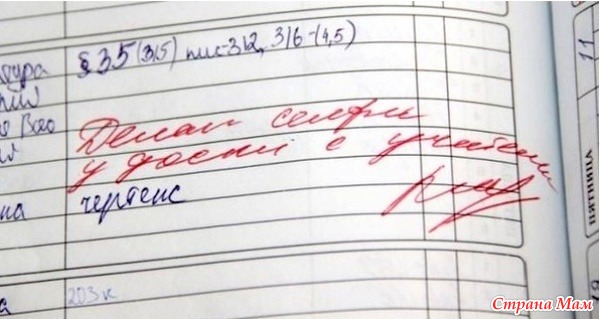 §35(3,5) пис-312, 316-(4,5)
Делал селфи
у доски с учителем
чертеж
203к
11
ПЯТНИЦА
Страна Мам